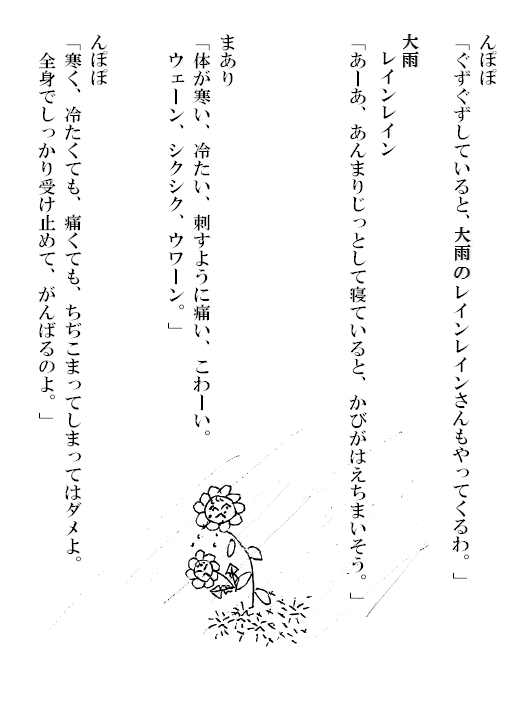 んぽぽ
「ぐずぐずしていると、大雨のレインレインさんもやってくるわ。」
大雨
レインレイン
「あーあ、あんまりじっとして寝ていると、かびがはえちまいそう。」
まあり
「体が寒い、冷たい、刺すように痛い、こわーい。
ウェーン、シクシク、ウワーン。」
んぽぽ
「寒く、冷たくても、痛くても、ちぢこまってしまってはダメよ。
全身でしっかり受け止めて、がんばるのよ。」